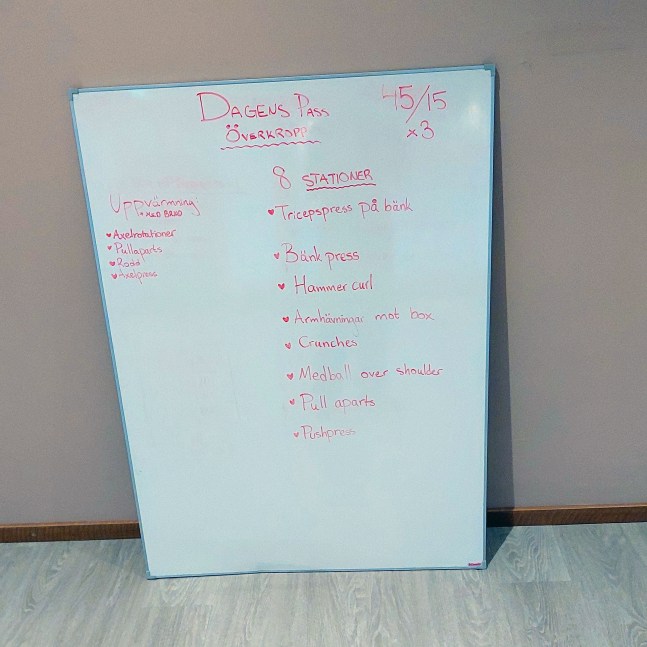 DAGENS PASS
ÖVERKROPP
45/15
x3
Uppvärmning
• MED BAND
♥ Axelrotationer
♥ Pullaparts
♥ Rodd
♥ Axelpress
8 STATIONER
♥ Tricepspress på bänk
♥ Bänkpress
♥ Hammer curl
♥ Armhävningar mot box
♥ Crunches
♥ Medball over shoulder
♥ Pull aparts
♥ Pushpress